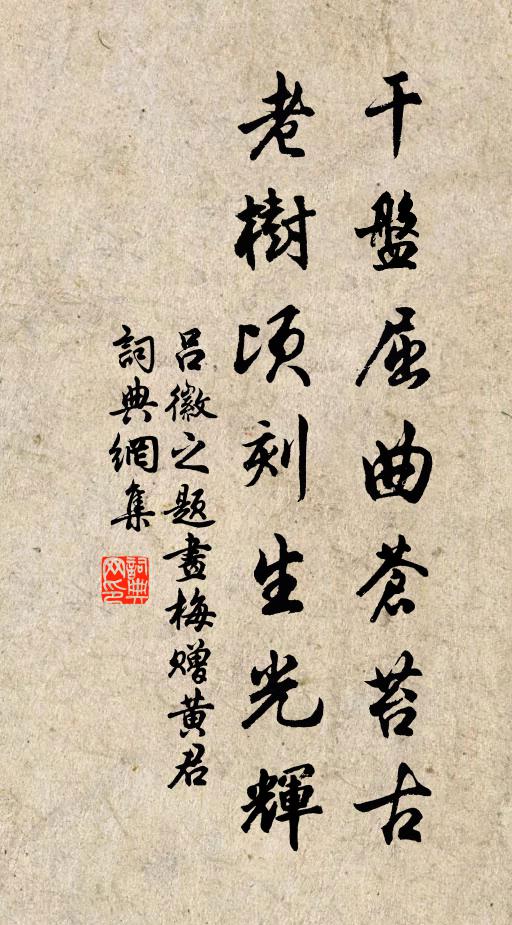 干盤屈曲蒼苔古
老樹頃刻生光輝
呂徽之題畫梅贈黄君
詞典網集
詞典网印